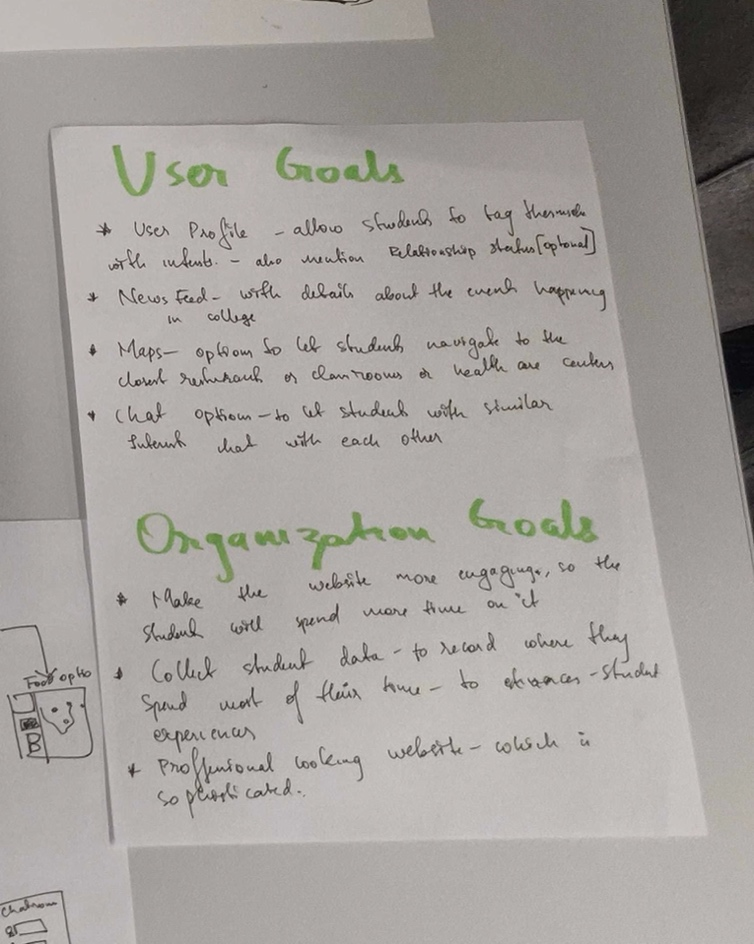 User Goals
* User Profile - allow students to tag themselves
with interests. - also mention Relationship status [optional]
* News Feed - with details about the events happening
in college
* Maps - options to let students navigate to the
closest restaurants or classrooms or health care centers
* Chat option - to let students with similar
Interest chat with each other
Organization Goals
* Make the website more engaging, so the
students will spend more time on it
* Collect student data - to record where they
Spend most of their time - to - student
experiences
* Proffesional looking website - which is
sophisticated.
Food optio
B
Chatroom